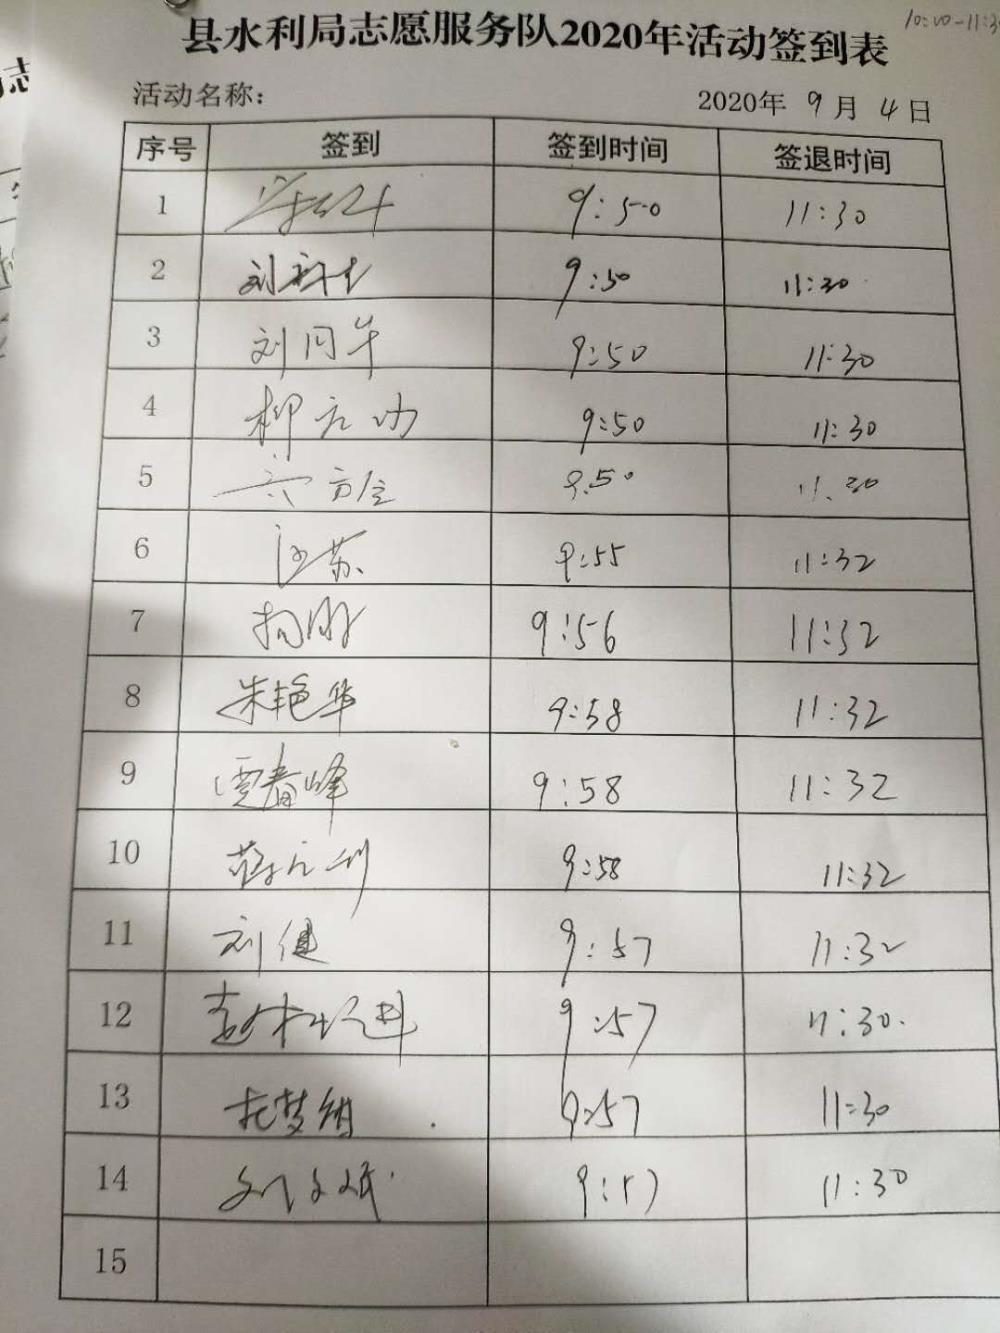 10:00-11:30
县水利局志愿服务队2020年活动签到表
活动名称: 2020年 9月 4日
序号 签到 签到时间 签退时间
1 9:50 11:30
2 刘 9:50 11:30
3 刘同午 9:50 11:30
4 柳 9:50 11:30
5 9:50 11:30
6 江苏 9:55 11:32
7 9:56 11:32
8 朱艳华 9:58 11:32
9 贾春峰 9:58 11:32
10 9:58 11:32
11 刘健 9:57 11:32
12 9:57 11:30
13 9:57 11:30
14 9:57 11:30
15